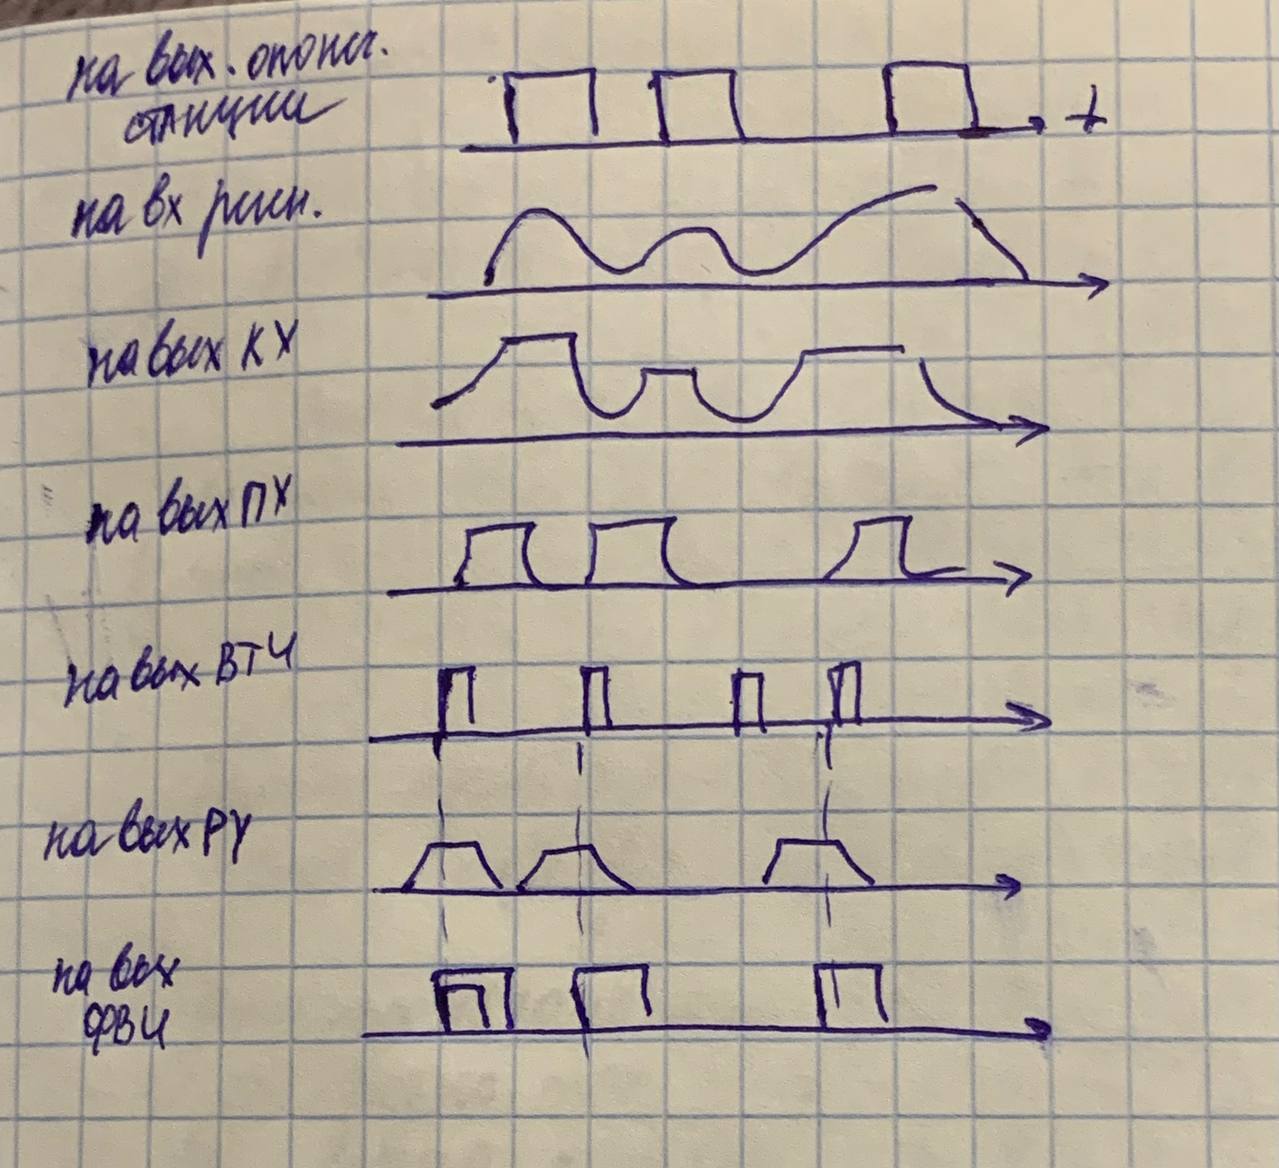 на вых. оконеч.
станции
t
на вх реген.
на вых КХ
на вых ПХ
на вых ВТЧ
на вых РУ
на вых
ФВИ